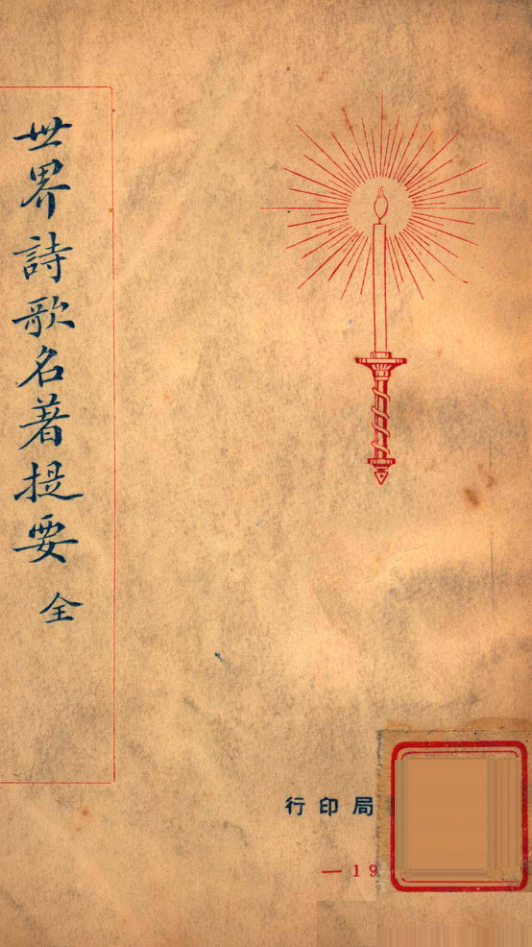 世界詩歌名著提要 全
行印局
一 19